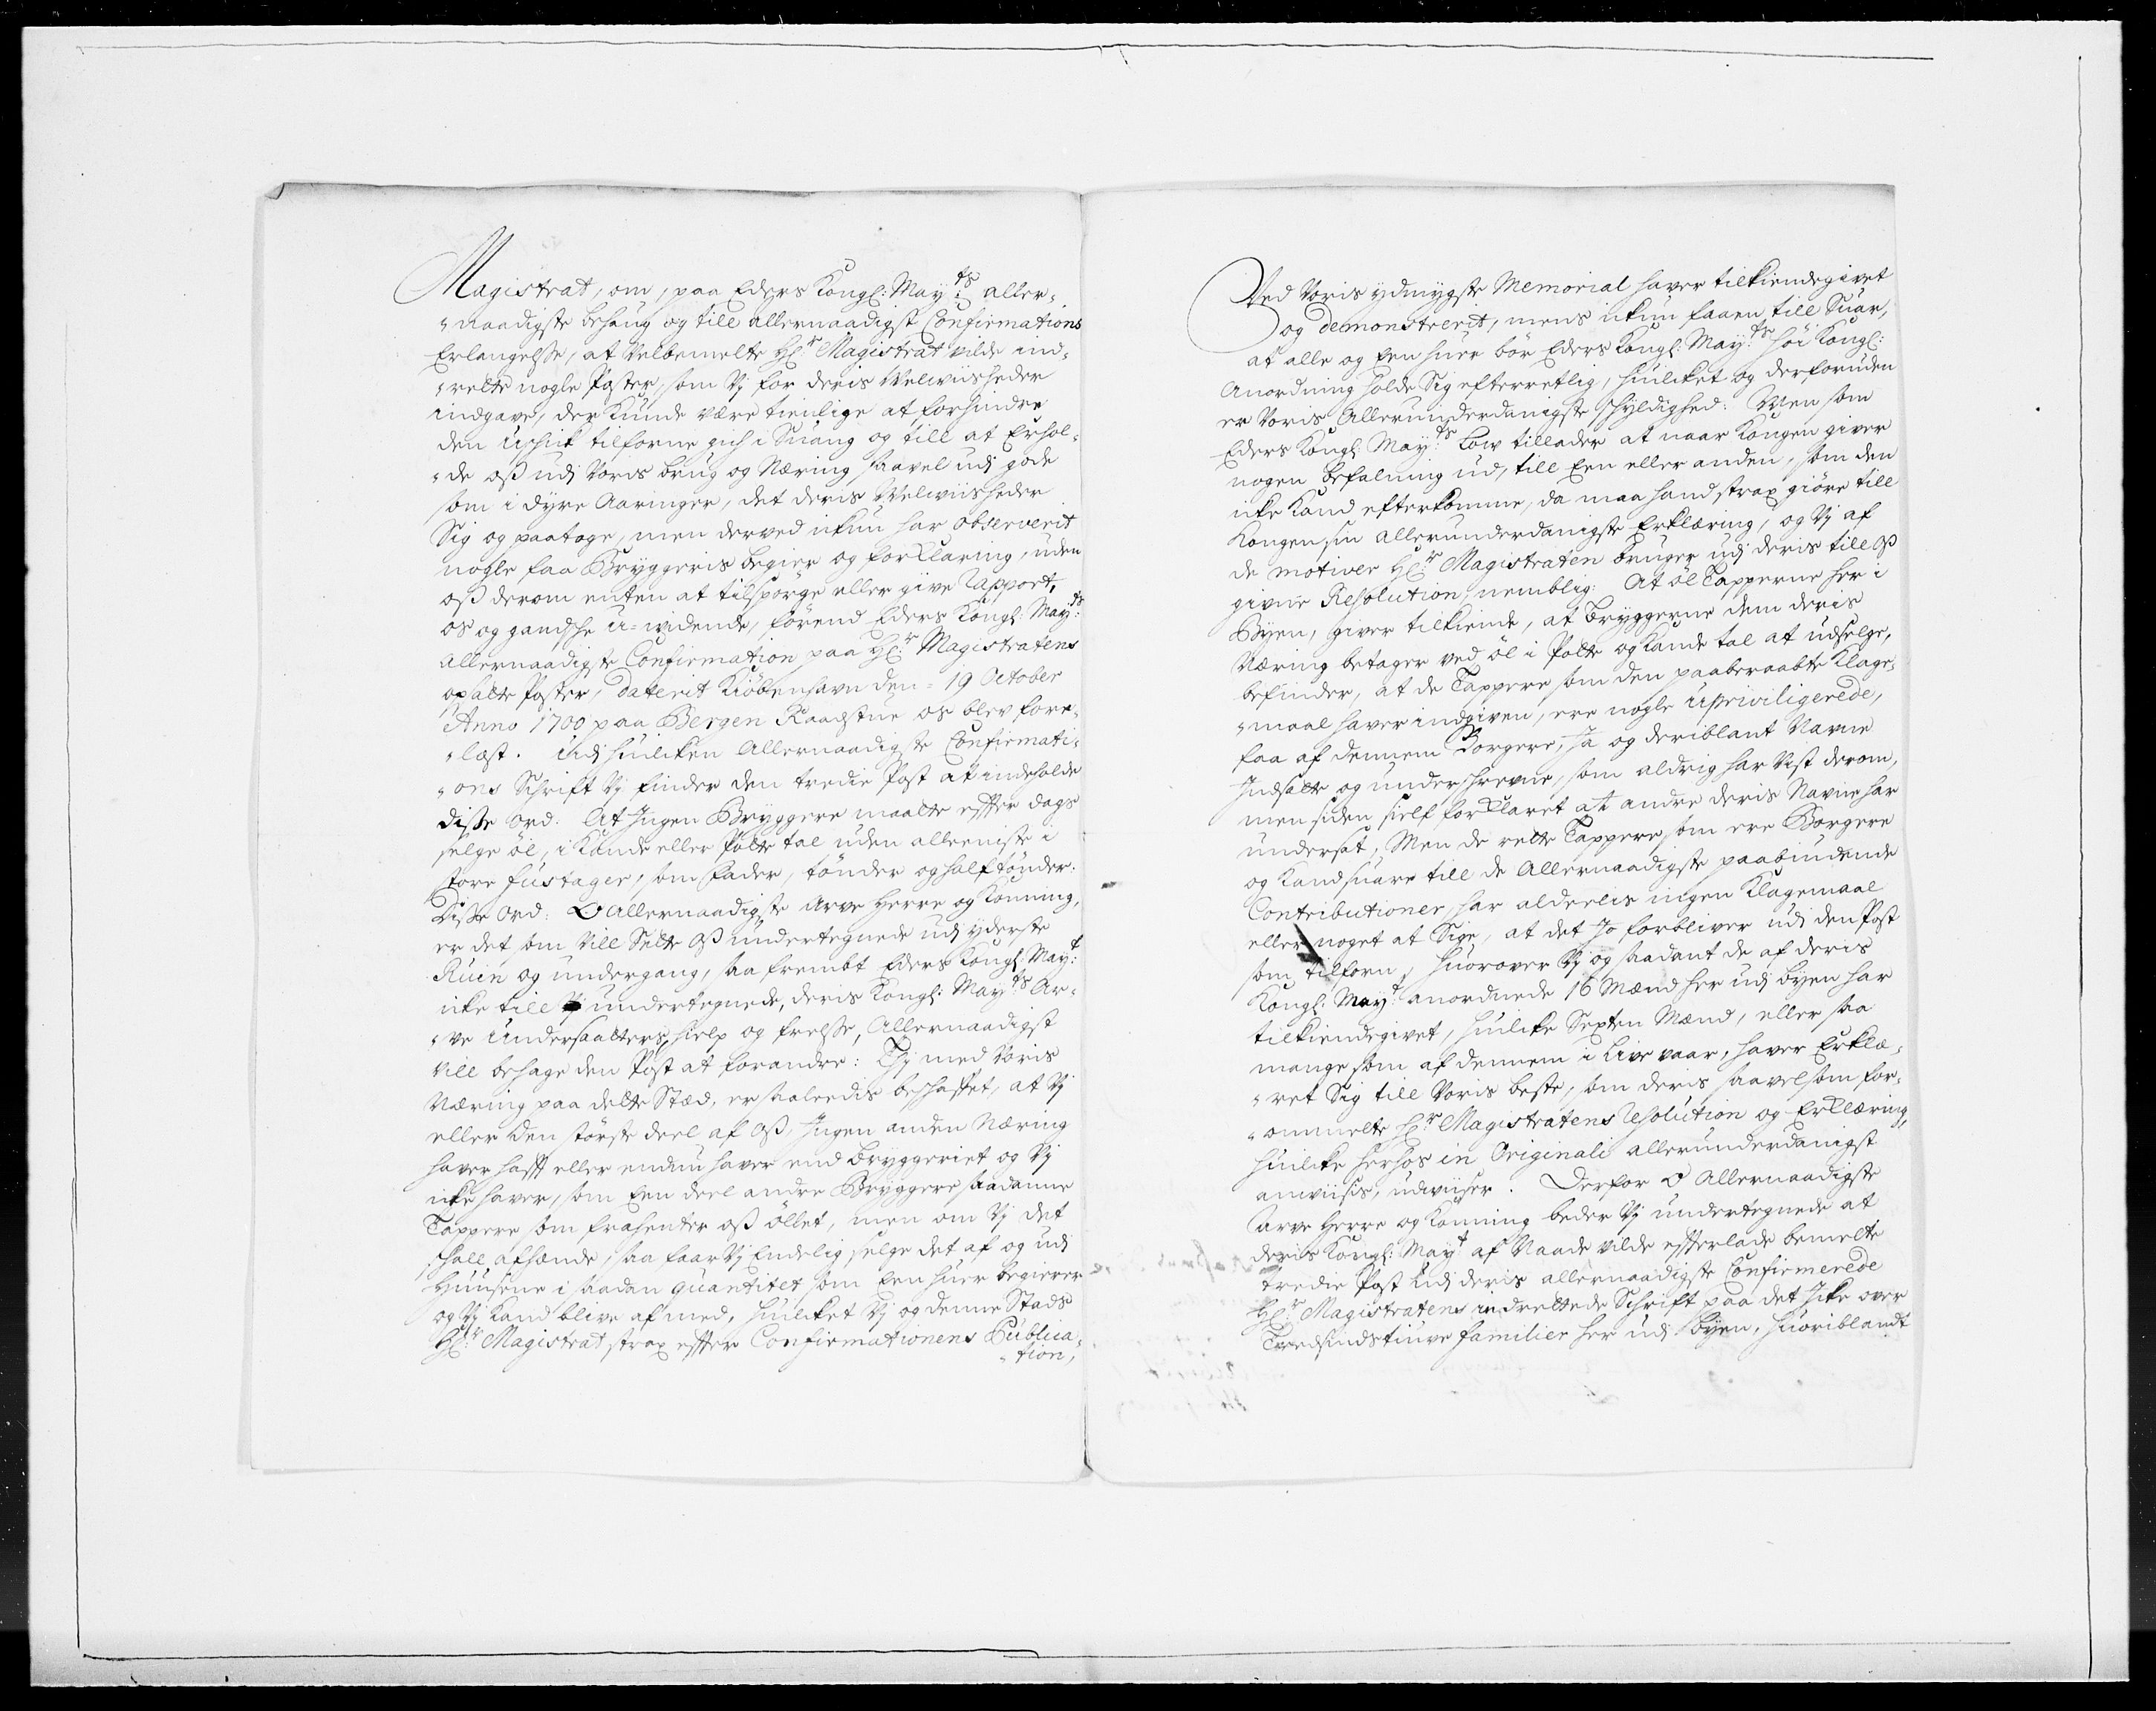 Magistrat, om, paa Eders Kongl: May:ts aller-
"naadigste behaug og till allernaadigst Confirmations
Erlangelsse, at Velbemelte Hl:r Magistrat vilde ind-
"rette nogle Poster, som Vj for deris Velwiisheder
indgaved, der kunde være tienlige at forhindre
den Uschik tilforne gich i Suang og till at Erhol-
"de oss udj Voris brug og Næring saavel udj gode
som i dyre Aaringer, det deris Velwiisheder
Sig og paatoge, men derved ickun har observerit
nogle faa Bryggeris begier og forklaring, uden
oss derom enten at tilspørge eller give Rapport,
os og gandsche U-widende, førend Eders Kongl: May:ts
Allernaadigste Confirmation paa Hl:r Magistratens
opsatte Poster, daterit Kiøbenhavn den 19 October
Anno 1700 paa Bergen Raadstue os blev fore-
"læst. Udj huilcken Allernaadigste Confirmati-
"ons Schrift Vj finder den tredie Post at indeholde
disse ord: At Ingen Bryggere maatte effter dags
selge øl, i Kande eller Potte tal uden alleeniste i
store fustager, som fader, tønder og half tønder:
Disse ord: O Allernaadigste Arve Herre og Konning,
er det som Vill Sette oss undertegnede udj yderste
Ruin og undergang, saafrembt Eders Kongl: May:t
icke till undertegnede, deris Kongl: May:ts Ar-
"ve Undersaatters, hielp og frelsse, Allernaadigst
vill behage den Post at forandre: Thj med Voris
Næring paa dette Stæd, er saaledis beschaffet, at Vj
eller den største deel af oss, Ingen anden Næring
haver hafft eller endnu haver end Bryggeriet og Vj
icke haver, som Een deel andre Bryggere saadanne
Tappere som frahenter oss øllet, men om Vj det
schall afhænde, saa faar Vj Endelig selge det af og udj
Huusene i saadan quantitet som Een huer begierer
og Vj kand blive af med, huilcket Vj og denne Stads
Hl:r Magistrat strax effter Confirmationens Publica-
"tion,
Ved Voris ydmygste Memorial haver tilkiendegivet
og demonstrerit, mens ickun faaen till Suar,
at alle og Een huer bør Eders Kongl: May:ts høi Kongl:
Anordning holde Sig efterretlig, huilcket og derforuden
er Voris Allerunderdanigste schyldighed: Men som
Eders Kongl: May:ts Low tillader at naar Kongen giver
nogen befalning ud, till Een eller anden, som den
icke kand efterkomme, da maa hand strax giøre till
Kongen sin allerunderdanigste Erklæring, og Vj af
de motiver Hl:r Magistraten bruger udj deris till oss
givne Resolution nemblig: At øl Tapperne her i
Byen, giver tilkiende, at Bryggerne dem deris
Næring betager ved øl i Potte og Kande tal at udselge,
befinder, at de Tappere som den paaberaabte Klage-
"maal haver indgiven, ere nogle Upriviligerede,
faa af dennem Borgere, Ja og deriblant Navne
Indsatte og underschrevne, som aldrig har Vist derom,
men siden sielf forklaret att andre deris Navne har
undersat, Men de rette Tappere som ere Borgere
og kand suare till de Allernaadigste paabiudende
Contributioner, har alderlis ingen Klagemaal
eller noget at Sige, at det Jo forbliver udj den Post
som tilforn, huorover Vj og saadant de af deris
Kongl: May:t anordnede 16 Mænd her udj byen har
tilkiendegivet, huilcke Sexten Mænd, eller saa
mange som af dennem i Live vaar, haver Erklæ-
"ret Sig till Voris beste, som deris saavelsom for-
"ommelte Hl:r Magistratens Resolution og Erklæring,
huilcke herhos in Originali allerunderdanigst
anwiisis, udwiiser. Derfor O Allernaadigste
Arve Herre og Konning beder Vj undertegnede at
deris Kongl: May:t af Naade vilde effterlade bemelte
tredie Post udj deris allernaadigste Confirmerede
Hl:r Magistratens indrettede Schrift paa det Icke over
Tredsindstiuve familier her udj Byen, huoriblandt